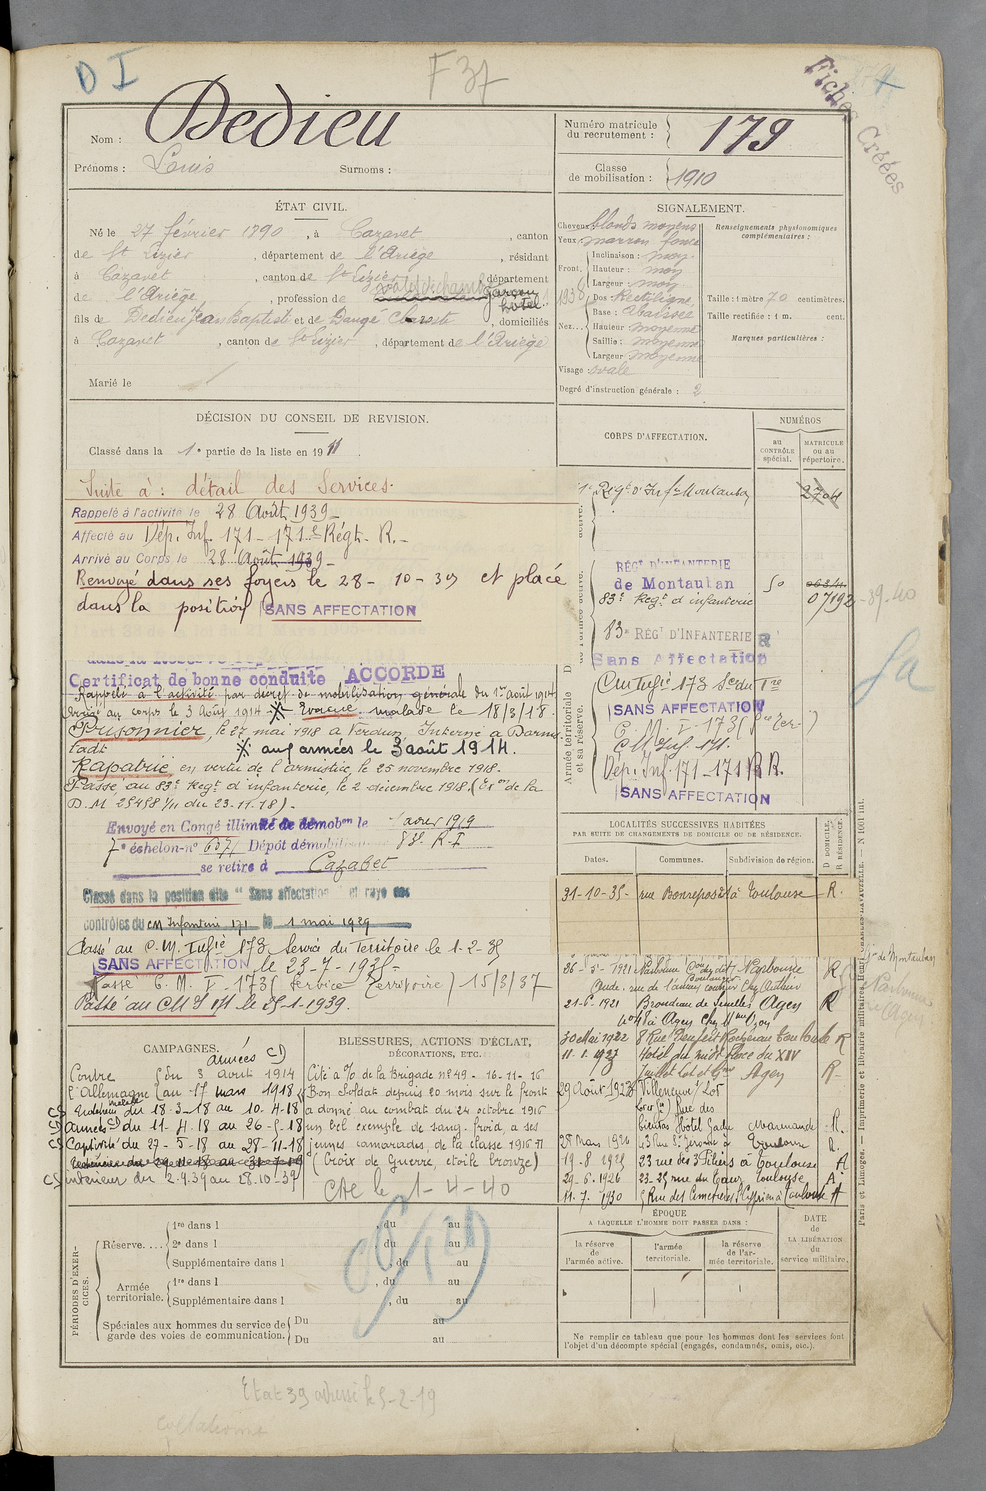 D I
F 37
Fiches Créées
Nom : Dedieu
Prénoms : Louis Surnoms :
Numéro matricule du recrutement : 179
Classe de mobilisation : 1910
ÉTAT CIVIL.
Né le 27 février 1890, à Cazavet, canton
de St Lizier, département de l'Ariège, résidant
à Cazavet, canton de St Lizier, département
de l'Ariège, profession de garçon hôtel
fils de Dedieu Jean Baptiste et de Dougé, domiciliés
à Cazavet, canton de St Lizier, département de l'Ariège
Marié le
SIGNALEMENT.
Cheveux blonds moyens
Yeux marron foncé
Front. Inclinaison : moy.
Hauteur : moy
Largeur : moy
1938
Nez... Dos : Rectiligne
Base : Abaissée
Hauteur moyenne
Saillie : moyenne
Largeur moyenne
Visage : ovale
Renseignements physionomiques complémentaires :
Taille : 1 mètre 70 centimètres.
Taille rectifiée : 1 m. cent.
Marques particulières :
Degré d'instruction générale : 2
DÉCISION DU CONSEIL DE REVISION.
Classé dans la 1e partie de la liste en 1911
Suite à : détail des Services.
Rappelé à l'activité le 28 Août 1939
Affecté au Dép. Inf. 171 - 171e Régt. R.
Arrivé au Corps le 28 Août 1939
Renvoyé dans ses foyers le 28-10-39 et placé
dans la position SANS AFFECTATION
Certificat de bonne conduite ACCORDÉ
Rappelé à l'activité par décret de mobilisation générale du 1er août 1914
Arrivé au corps le 3 Août 1914 Evacué malade le 18/3/18.
Prisonnier, le 27 mai 1918 à Verdun, Interné à Darmstadt
aux armées le 3 août 1914.
Rapatrié en vertu de l'armistice, le 25 novembre 1918.
Passé au 83e Regt d'infanterie, le 2 décembre 1918.
D. M. 28458 1/11 du 23.11.18)
Envoyé en Congé illimité de démobon le avril 1919
7e échelon - no 607 Dépôt démobilisateur 88. R. I
se retire à Cazabet
Classé dans la position dite "Sans affectation" et rayé des
contrôles du CM Infanterie 171 le 1 mai 1929
Passé au C. M. Infie 173 Service du Territoire le 1-2-35
SANS AFFECTATION le 23-7-1935
Passé C. M. I 173 (Service Territoire) 15/3/37
Passé au CM I 171 le 25.1.1939.
CORPS D'AFFECTATION.
NUMÉROS
au CONTRÔLE spécial.
MATRICULE ou au répertoire.
Regt d'Infie Montauban 2704
RÉGt D'INFANTERIE
de Montauban
83e Regt d'infanterie 50 07192
39.40
83e RÉGt D'INFANTERIE
Sans Affectation
Cm Infie 173 Sce du Tre
SANS AFFECTATION
C. M. I. 173 (Ser Ter.)
C M Inf 171.
Dép. Inf. 171 - 171 R R.
SANS AFFECTATION
Armée territoriale et sa réserve.
LOCALITÉS SUCCESSIVES HABITÉES
PAR SUITE DE CHANGEMENTS DE DOMICILE OU DE RÉSIDENCE.
Dates. Communes. Subdivision de région. D DOMICILE. R RÉSIDENCE.
31-10-35- rue Bonrepos à Toulouse R.
1921 Narbonne Narbonne R
21-6.1921 Agen R
No 48 à Agen Chez Mme
30 Mai 1922 8 Rue Toulouse R
11.1.1927 Hotel du midi Place du XIV
Juillet Lot et Gne Agen R
29 Août Villeneuve s/ Lot
Rue des
Hotel Marmande R.
28 Mars 1926 43 Rue St Jerome à Toulouse R.
19-8-1925 23 rue des 3 Piliers à Toulouse A
29-6.1926 23-25 rue du Taur Toulouse A
11.7.1930 5 Rue des Cimetières St Cyprien à Toulouse A
CAMPAGNES.
Contre l'Allemagne
armées C)
du 3 Août 1914
au 17 mars 1918
Intérieur malade du 18-3-18 au 10.4.18
Armées C) du 11-4.18 au 26-5-18
Captivité du 27-5-18 au 28-11-18
intérieur du 2.9.39 au 28.10-39
BLESSURES, ACTIONS D'ÉCLAT,
DÉCORATIONS, ETC.
Cité à l'O. de la Brigade no 49 - 16-11-16
Bon Soldat depuis 20 mois sur le front
a donné au combat du 24 octobre 1916
un bel exemple de sang-froid, à ses
jeunes camarades, de la classe 1916
(Croix de Guerre, étoile bronze)
CAC le 1-4-40
PÉRIODES D'EXERCICES.
Réserve.... 1re dans l , du au
2e dans l , du au
Supplémentaire dans l , du au
Armée territoriale. 1re dans l , du au
Supplémentaire dans l , du au
Spéciales aux hommes du service de garde des voies de communication. Du au
Du au
ÉPOQUE
A LAQUELLE L'HOMME DOIT PASSER DANS :
la réserve de l'armée active.
l'armée territoriale.
la réserve de l'armée territoriale.
DATE de LA LIBÉRATION du service militaire.
Ne remplir ce tableau que pour les hommes dont les services font
l'objet d'un décompte spécial (engagés, condamnés, omis, etc.).
Paris et Limoges. — Imprimerie et librairie militaires Henri CHARLES-LAVAUZELLE. — N 1001 int.
Etat 39 adressé le 5-2-19